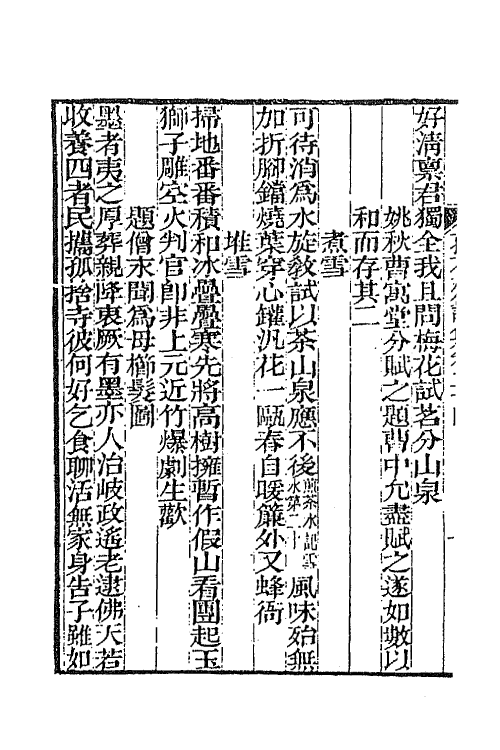 好淸禀君獨全我且問梅花試茗分山泉
姚秋曹寓堂分賦之題曹中允盡賦之遂如數以
和而存其二
煮雪
可待消爲水旋敎試以茶山泉應不後煎茶水記雪水第二十風味殆無
加折腳鐺燒葉穿心罐汎花一甌春自暖簾外又蜂衙
堆雪
掃地番番積和冰疊疊寒先將高樹擁暫作假山看團起玉
獅子雕空火判官卽非上元近竹爆劇生歡
題僧末聞爲母櫛髮圖
墨者夷之厚葬親降衷厥有墨亦人治岐政遙老逮佛天若
收養四者民攜孤捨寺彼何好乞食聊活無家身吿子雖如